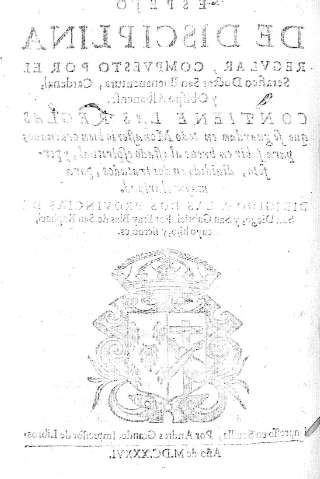 ESPEJO
DE DISCIPLINA
REGVLAR, COMPVESTO POR EL
Serafico Doctor San Buenauentura, Cardenal,
y Obispo Albanense.
CONTIENE LAS REGLAS
que se guardan en todo Monasterio bien ordenado,
para subir en breue al estado espiritual, y per-
feto, diuidido en dos tratados, para
DIRIGIDO A LAS DOS PROVINCIAS DE
San Diego, y San Gabriel. Por Fray Blas de San Raphael,
cuyo hijo, y sieruo es.
Impresso en Seuilla, Por Andres Grande. Impressor de Libros.
Año de M.DC.XXXVI.